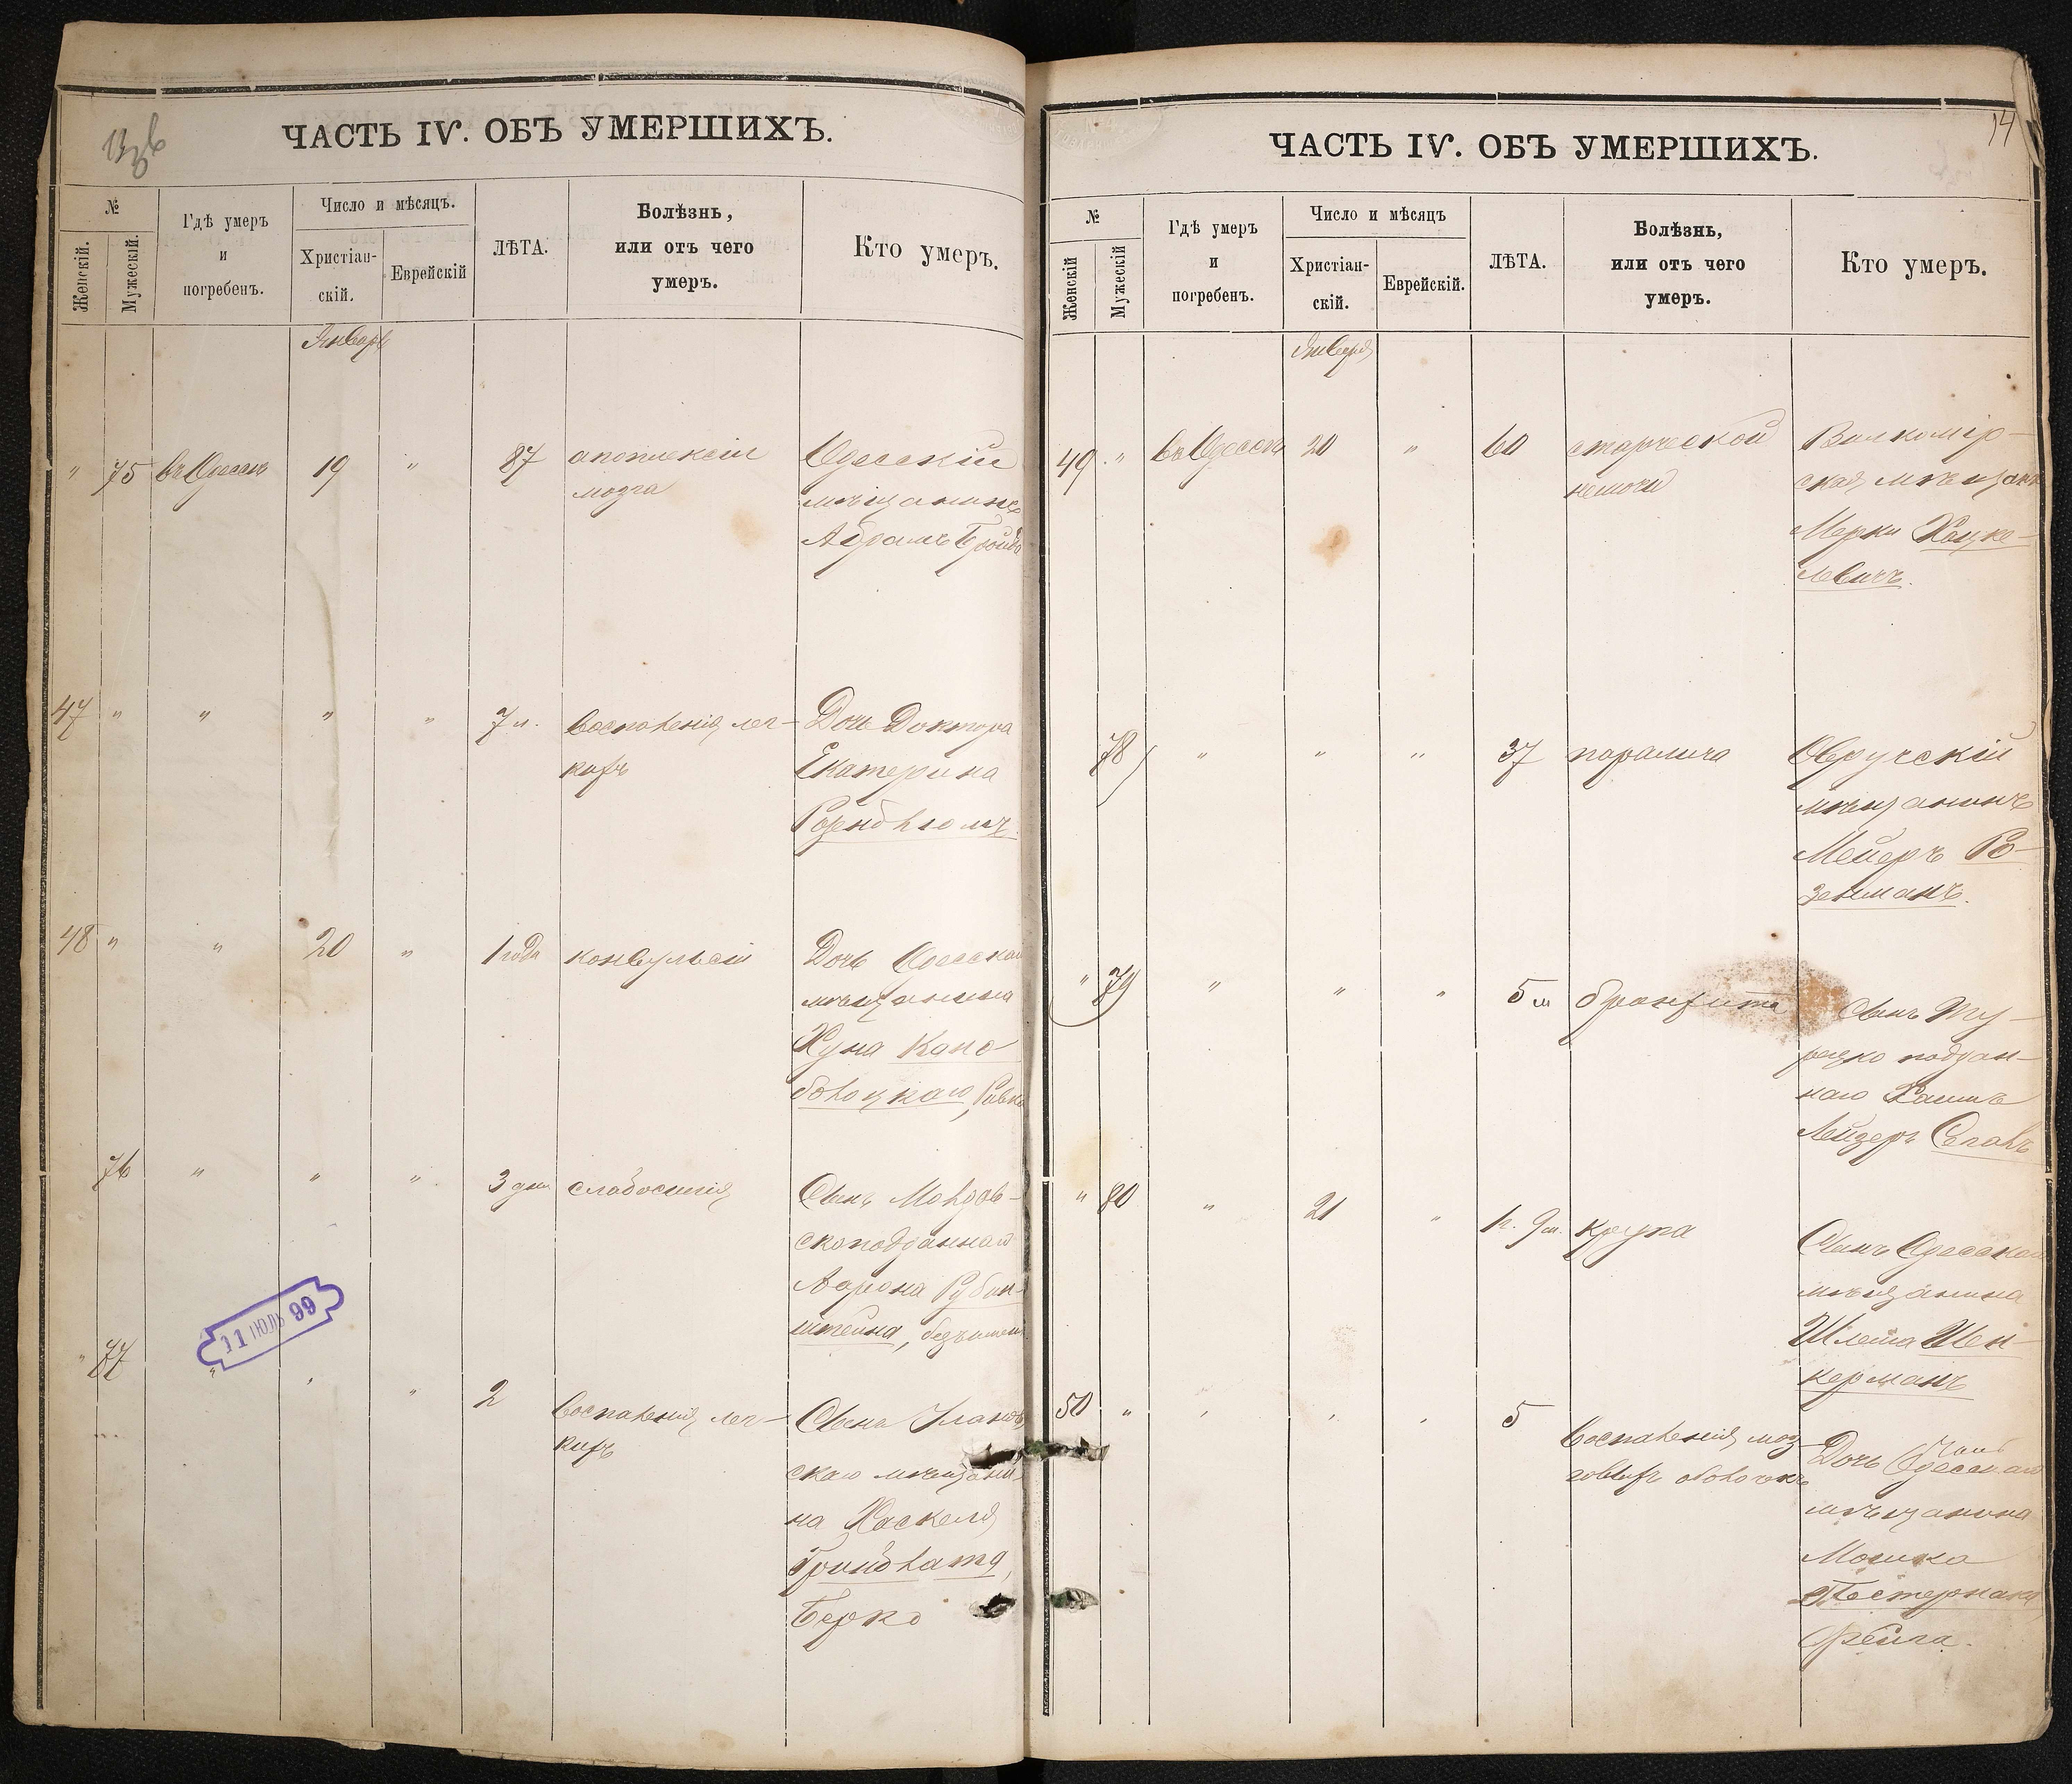 ЧАСТЬ IV. ОБЪ УМЕРШИХЪ.
№
Женскій.
Мужескій.
Гдѣ умеръ
и
погребенъ.
Число и мѣсяцъ.
Христіан-
скій.
Еврейскій
ЛѢТА.
Болѣзнь,
или отъ чего
умеръ.
Кто умеръ.
Январь
" 75 въ Одессѣ 19 " 87 апоплексіи
мозга
Одесскій
мѣщанинъ
Абрамъ
47 " " " " 7 м. воспаленія лег-
кихъ
Дочь Доктора
Екатерина
Розенблюмъ.
48 " " 20 " 1 года конвульсій
Дочь Одесскаго
мѣщанина
Хуна Капо
болоцкаго, Ривка
76 " " " 3 дня слабосилія
Сынъ Молдав-
скоподданнаго
Аарона Рубин-
штейна,
" 77 " " " 2 воспаленія лег-
кихъ
Сына
скаго мѣщани-
на Хаскеля
Гринблата,
Берко
11 ІЮЛЬ 99
14
ЧАСТЬ IV. ОБЪ УМЕРШИХЪ.
№
Женскій
Мужескій
Гдѣ умеръ
и
погребенъ.
Число и мѣсяцъ
Христіан-
скій.
Еврейскій.
ЛѢТА.
Болѣзнь,
или отъ чего
умеръ.
Кто умеръ.
Января
49 " въ Одессѣ 20 " 60 старческой
немочи
Вилкомір-
ская мѣщанка
Мерка Хацке-
левичъ.
78 " " " 37 паралича
Овручскій
мѣщанинъ
Мейеръ Ро-
зенманъ.
" 79 " " " 5 м бронхита
Сынъ Ту-
рецко поддан-
наго
Лейзеръ
" 80 " 21 " 1 г. 9 м. крупа
Сынъ Одесскаго
мѣщанина
Шлема Шен-
керманъ
50 " " " " 5 воспаленія моз-
говыхъ оболочекъ
Дочь Одесскаго
мѣщанина
Мошка
Пастернака,
Фейга.